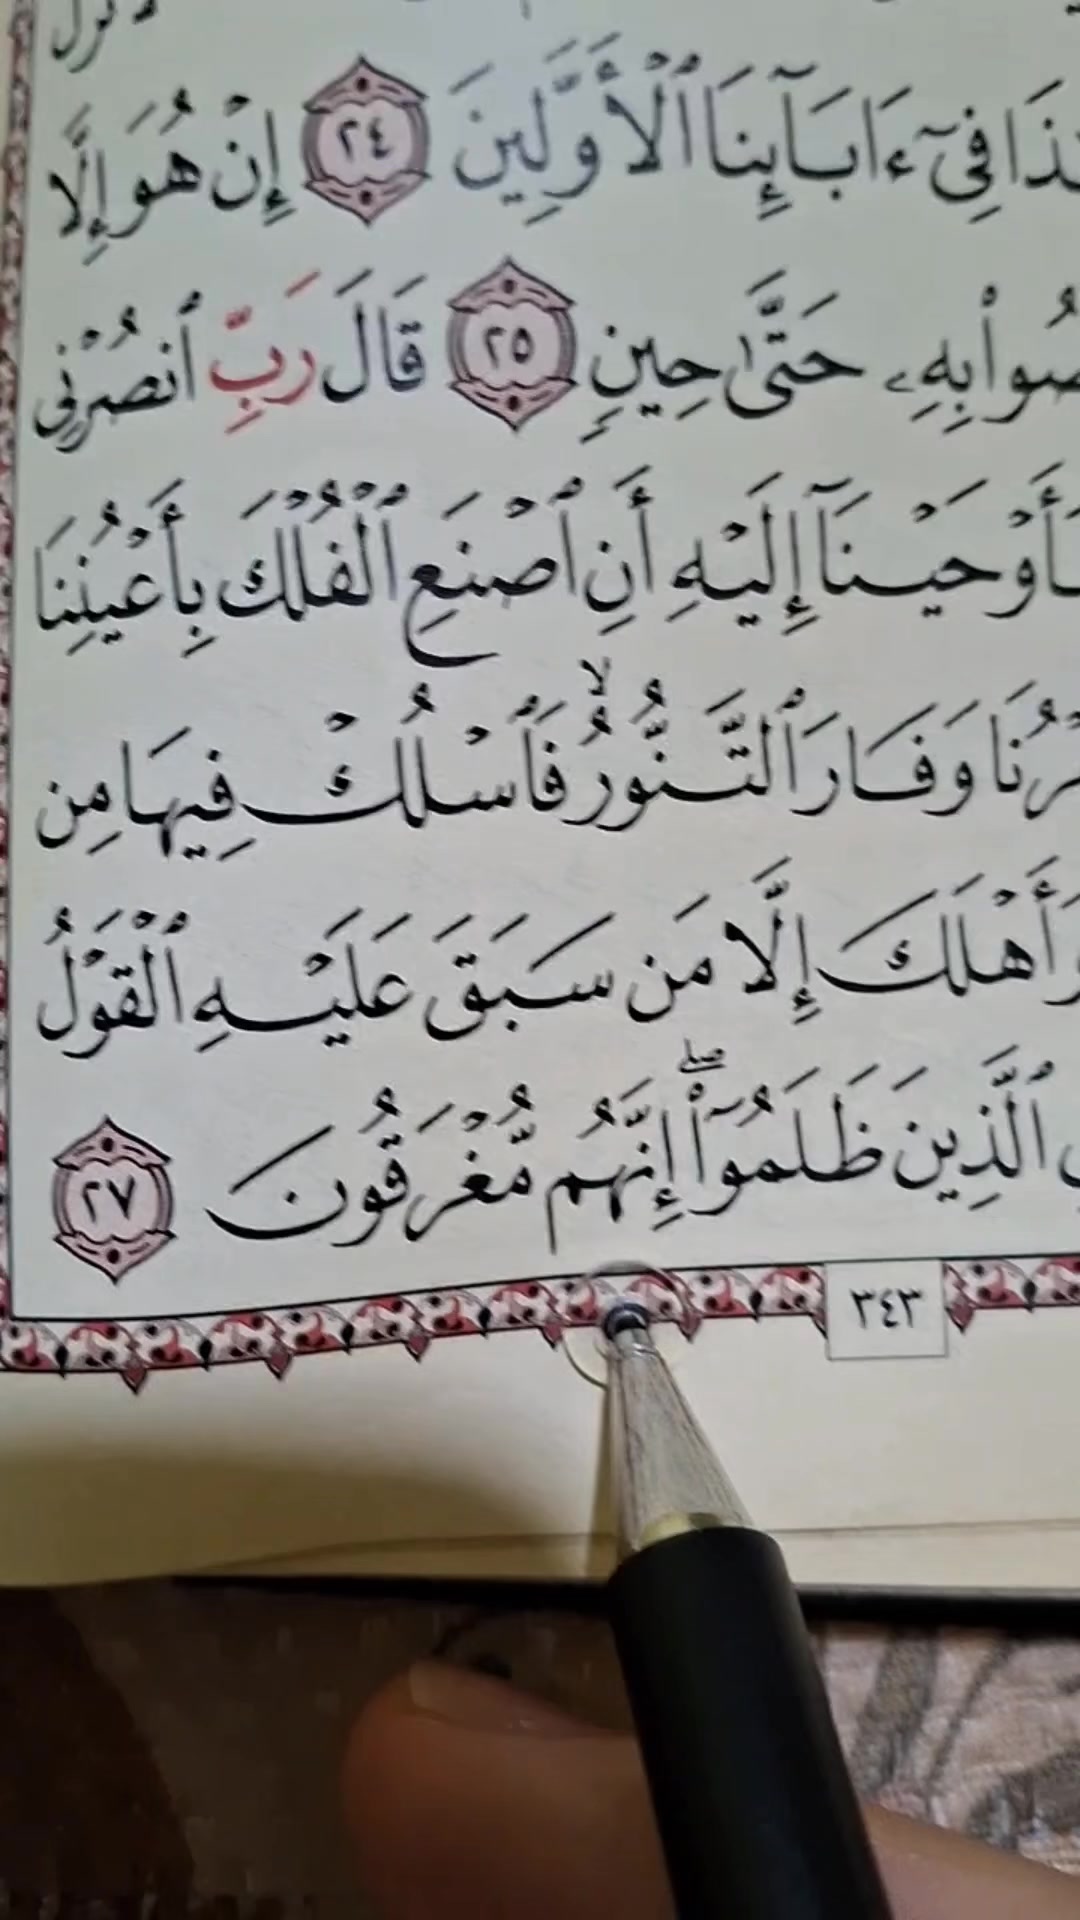 فِىٓ ءَابَآئِنَا ٱلْأَوَّلِينَ ٢٤ إِنْ هُوَ إِلَّا
بِهِۦ حَتَّىٰ حِينٍ ٢٥ قَالَ رَبِّ ٱنصُرْنِى
أَوْحَيْنَآ إِلَيْهِ أَنِ ٱصْنَعِ ٱلْفُلْكَ بِأَعْيُنِنَا
وَفَارَ ٱلتَّنُّورُ ۙ فَٱسْلُكْ فِيهَا مِن
وَأَهْلَكَ إِلَّا مَن سَبَقَ عَلَيْهِ ٱلْقَوْلُ
ٱلَّذِينَ ظَلَمُوٓا۟ ۖ إِنَّهُم مُّغْرَقُونَ ٢٧
٣٤٣